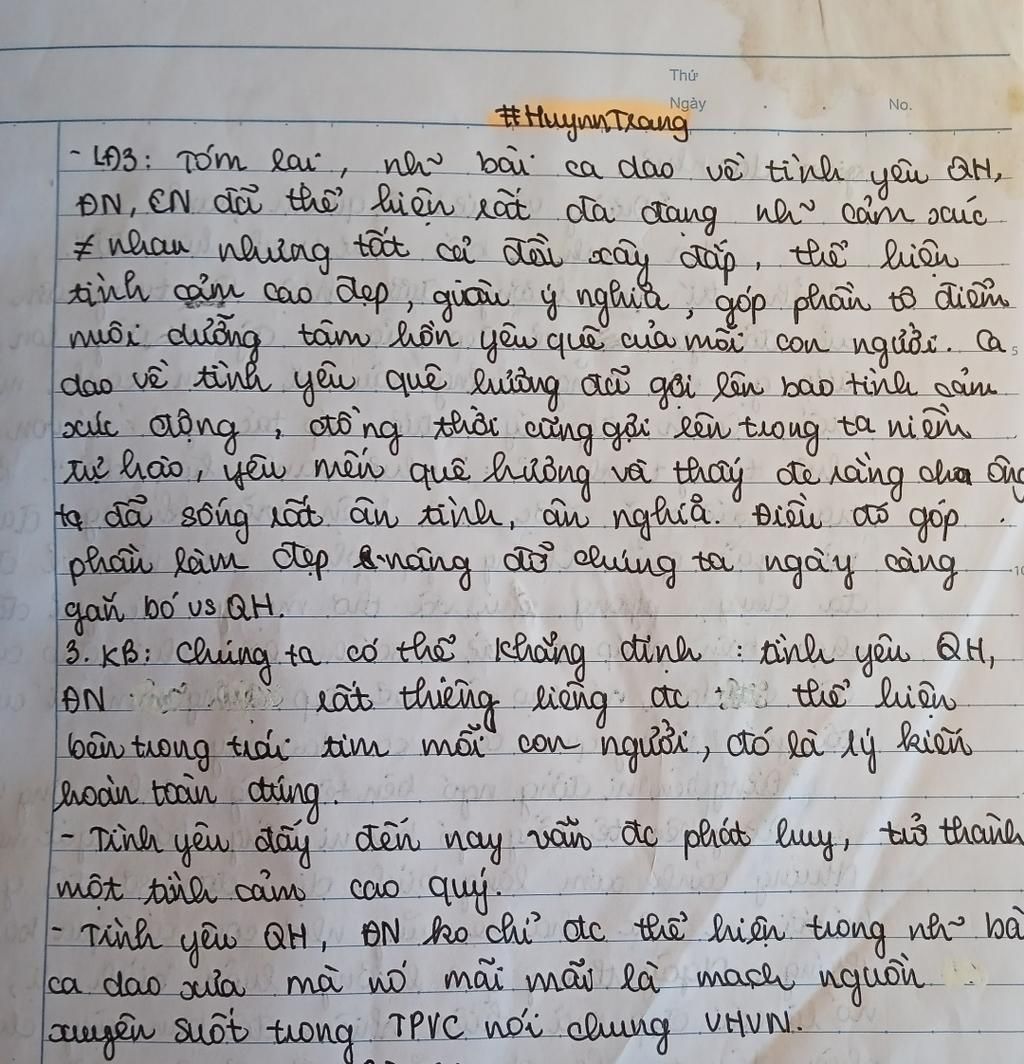 Thứ
Ngày . . No.
#HuynnTrang
- LĐ3: Tóm lại, nh~ bài ca dao về tình yêu QH,
ĐN, CN đã thể hiện rất đa dạng nh~ cảm xúc
≠ nhau nhưng tất cả đều xây đắp, thể hiện
tình cảm cao đẹp, giàu ý nghĩa, góp phần tô điểm
nuôi dưỡng tâm hồn yêu quê của mỗi con người. Ca
5
dao về tình yêu quê hương đã gợi lên bao tình cảm
xúc động, đồng thời cũng gợi lên trong ta niềm
tự hào, yêu mến quê hương và thấy đc rằng cha ông
ta đã sống rất ân tình, ân nghĩa. Điều đó góp
phần làm đẹp & nâng đỡ chúng ta ngày càng
10
gắn bó vs QH.
3. KB: Chúng ta có thể khẳng định: tình yêu QH,
ĐN rất thiêng liêng đc thể hiện
bên trong trái tim mỗi con người, đó là lý kiến
hoàn toàn đúng.
- Tình yêu đấy đến nay vẫn đc phát huy, trở thành
một tình cảm cao quý.
- Tình yêu QH, ĐN ko chỉ đc thể hiện trong nh~ bà
ca dao xưa mà nó mãi mãi là mạch nguồn
xuyên suốt trong TPVC nói chung VHVN.